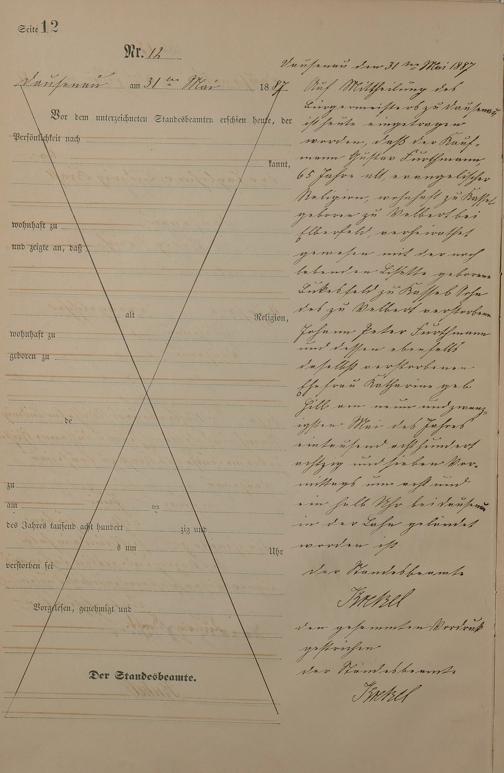 Seite 12
Nr. 12
Dausenau am 31 ten Mai 1887
Vor dem unterzeichneten Standesbeamten erschien heute, der
Persönlichkeit nach
kannt,
wohnhaft zu
und zeigte an, daß
alt Religion,
wohnhaft zu
geboren zu
de
zu
am
des Jahres tausend acht hundert zig und
s um Uhr
verstorben sei
Vorgelesen, genehmigt und
Der Standesbeamte.
Dausenau den 31 ten Mai 1887
Auf Mittheilung des
Bürgermeisters zu Dausenau
ist heute eingetragen
worden, daß der Kauf-
mann Gustav Furthmann,
65 Jahre alt, evangelischer
Religion, wohnhaft zu Kassel
geboren zu Velbert bei
Elberfeld, verheirathet
gewesen mit der noch
lebenden Lisette geborene
zu Kassel Sohn
des zu Velbert verstorbenen
Johann Peter Furthmann
und dessen ebenfalls
daselbst verstorbenen
Ehefrau Katharine geb
Hill am neun und zwanz-
igsten Mai des Jahres
eintausend acht hundert
achtzig und sieben Vor-
mittags um acht und
ein halb Uhr bei Dausenau
in der Lahn geländet
worden ist
Der Standesbeamte
den gesammten Vordruck
gestrichen
der Standesbeamte